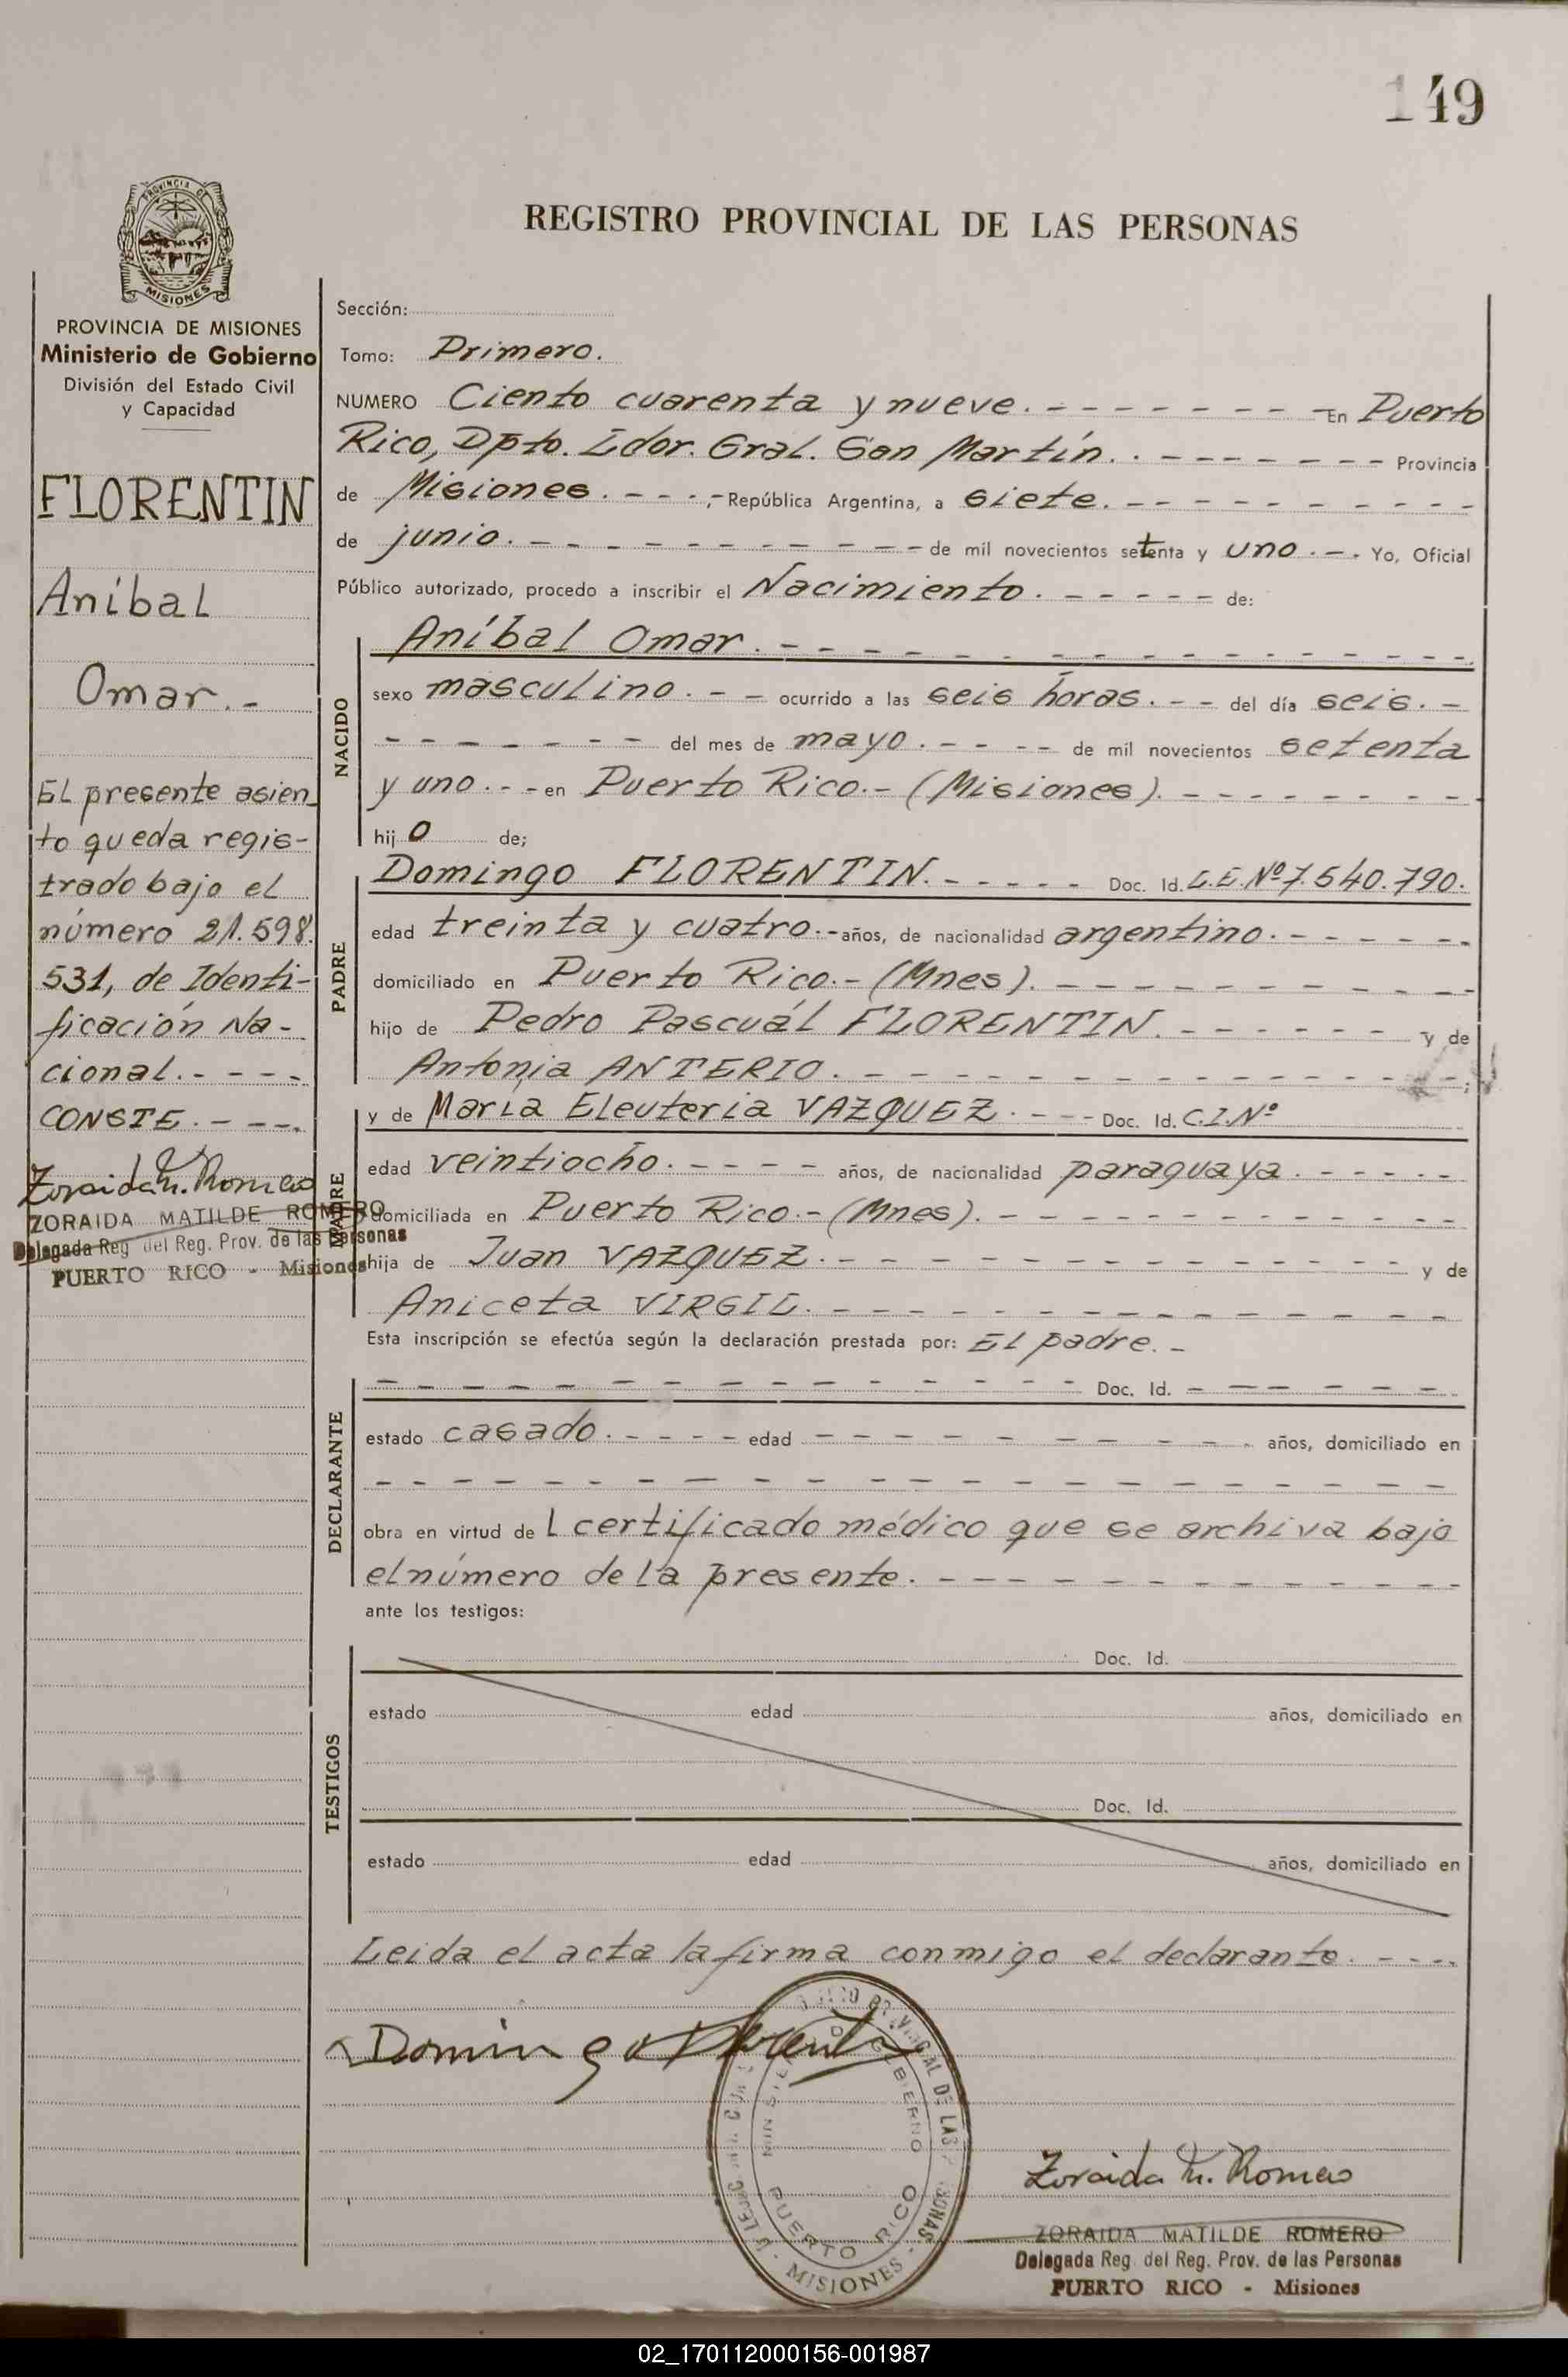 149
PROVINCIA DE
MISIONES
PROVINCIA DE MISIONES
Ministerio de Gobierno
División del Estado Civil
y Capacidad
FLORENTIN
Aníbal
Omar.-
El presente asien-
to queda regis-
trado bajo el
número 21.598.
531, de Identi-
ficación Na-
cional.----
CONSTE.----
Zoraida M. Romero
ZORAIDA MATILDE ROMERO
Delegada Reg. del Reg. Prov. de las Personas
PUERTO RICO - Misiones
REGISTRO PROVINCIAL DE LAS PERSONAS
Sección:
Tomo: Primero.
NUMERO Ciento cuarenta y nueve.-------- En Puerto
Rico, Dpto. Ldor. Gral. San Martín..------- Provincia
de Misiones.---,- República Argentina, a siete.---------
de junio.----------- de mil novecientos setenta y uno.--. Yo, Oficial
Público autorizado, procedo a inscribir el Nacimiento.----- de:
NACIDO
Aníbal Omar.---------------
sexo masculino.-- ocurrido a las seis horas.--- del día seis.-
------- del mes de mayo.----- de mil novecientos setenta
y uno.--- en Puerto Rico.-(Misiones).--------
hijo de;
PADRE
Domingo FLORENTIN.----- Doc. Id. L.E.Nº7.540.790.
edad treinta y cuatro.- años, de nacionalidad argentino.------
domiciliado en Puerto Rico.-(Mnes).----------
hijo de Pedro Pascuál FLORENTIN.------ y de
Antonia ANTERIO.--------------;
MADRE
y de María Eleuteria VAZQUEZ.--- Doc. Id. C.I.Nº
edad veintiocho.---- años, de nacionalidad paraguaya.-----
domiciliada en Puerto Rico.-(Mnes).------------
hija de Juan VAZQUEZ.------------- y de
Aniceta VIRGIL.--------------
Esta inscripción se efectúa según la declaración prestada por: El padre.-
DECLARANTE
--------------- Doc. Id. ------
estado casado.---- edad --------- años, domiciliado en
-------------------
obra en virtud de l certificado médico que se archiva bajo
el número de la presente.------------
ante los testigos:
TESTIGOS
Doc. Id.
estado edad años, domiciliado en
Doc. Id.
estado edad años, domiciliado en
Leida el acta la firma conmigo el declarante.----
Domingo Florentin
PROVINCIAL DE LAS PERSONAS
GOBIERNO
PUERTO RICO
MISIONES
Zoraida M. Romero
ZORAIDA MATILDE ROMERO
Delegada Reg. del Reg. Prov. de las Personas
PUERTO RICO - Misiones
02_170112000156-001987